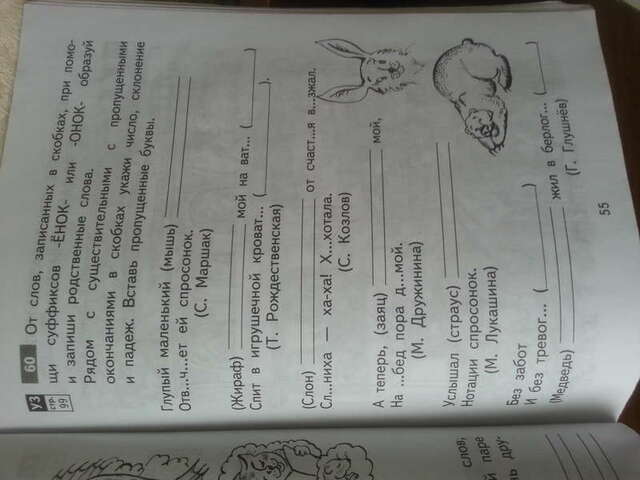 УЗ
стр. 99
60 От слов, записанных в скобках, при помо-
щи суффиксов -ЁНОК- или -ОНОК- образуй
и запиши родственные слова.
Рядом с существительными с пропущенными
окончаниями в скобках укажи число, склонение
и падеж. Вставь пропущенные буквы.
Глупый маленький (мышь)
Отв...ч...ет ей спросонок.
(С. Маршак)
(Жираф) мой на ват... ( )
Спит в игрушечной кроват... ( ).
(Т. Рождественская)
(Слон) от счаст...я в...зжал.
Сл...ниха — ха-ха! Х...хотала.
(С. Козлов)
А теперь, (заяц) мой,
На ...бед пора д...мой.
(М. Дружинина)
Услышал (страус)
Нотации спросонок.
(М. Лукашина)
Без забот
И без тревог... ( )
(Медведь) жил в берлог... ( )
(Г. Глушнёв)
55
слов,
й паре
дру-